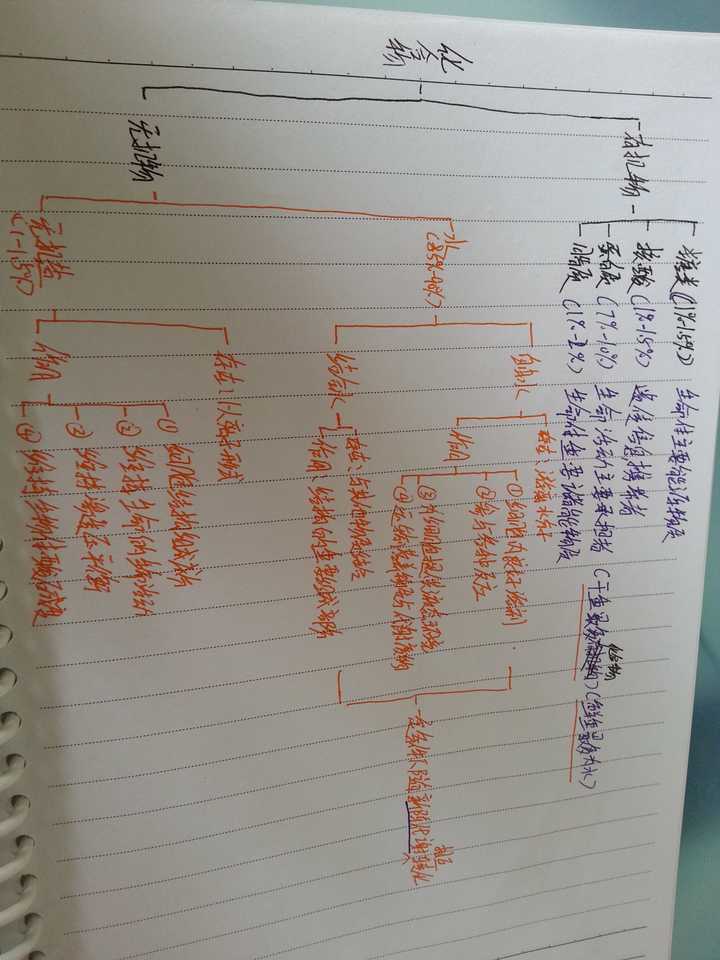 化合物
有机物
糖类(1%-1.5%) 生命体主要能源物质
核酸(1%-1.5%) 遗传信息携带者
蛋白质(7%-10%) 生命活动主要承担者(干重最多化合物)(鲜重最多为水)
脂质(1%-2%) 生命体重要储能物质
无机物
水(85%-90%)
自由水
特点:游离水分
作用
①细胞内良好溶剂
②参与各种反应
③为细胞提供液态环境
④运输营养物质与代谢废物
结合水
特点:与其他物质结合
作用:结构的重要组成部分
一定条件(随新陈代谢相互转化
无机盐
(1-1.5%)
存在:以离子形式
作用
①细胞结构组成成分
②维持生命体的生命活动
③维持渗透压平衡
④维持细胞酸碱度